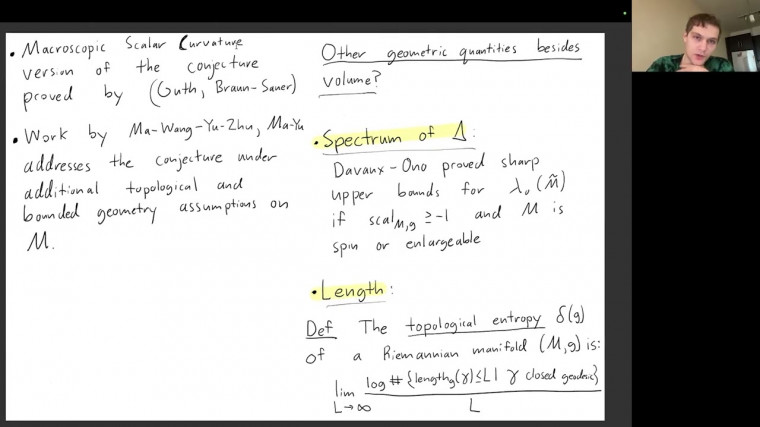 • Macroscopic Scalar Curvature
version of the conjecture
proved by (Guth, Braun-Sauer)
• Work by Ma-Wang-Yu-Zhu, Ma-Yu
addresses the conjecture under
additional topological and
bounded geometry assumptions on
M.
Other geometric quantities besides
volume?
• Spectrum of Δ:
Davaux-Ono proved sharp
upper bounds for λ₀(M̃)
if scal_{M,g} ≥ -1 and M is
spin or enlargeable
• Length:
Def The topological entropy δ(g)
of a Riemannian manifold (M,g) is:
lim_{L→∞} log #{length_g(γ)≤L | γ closed geodesic} / L